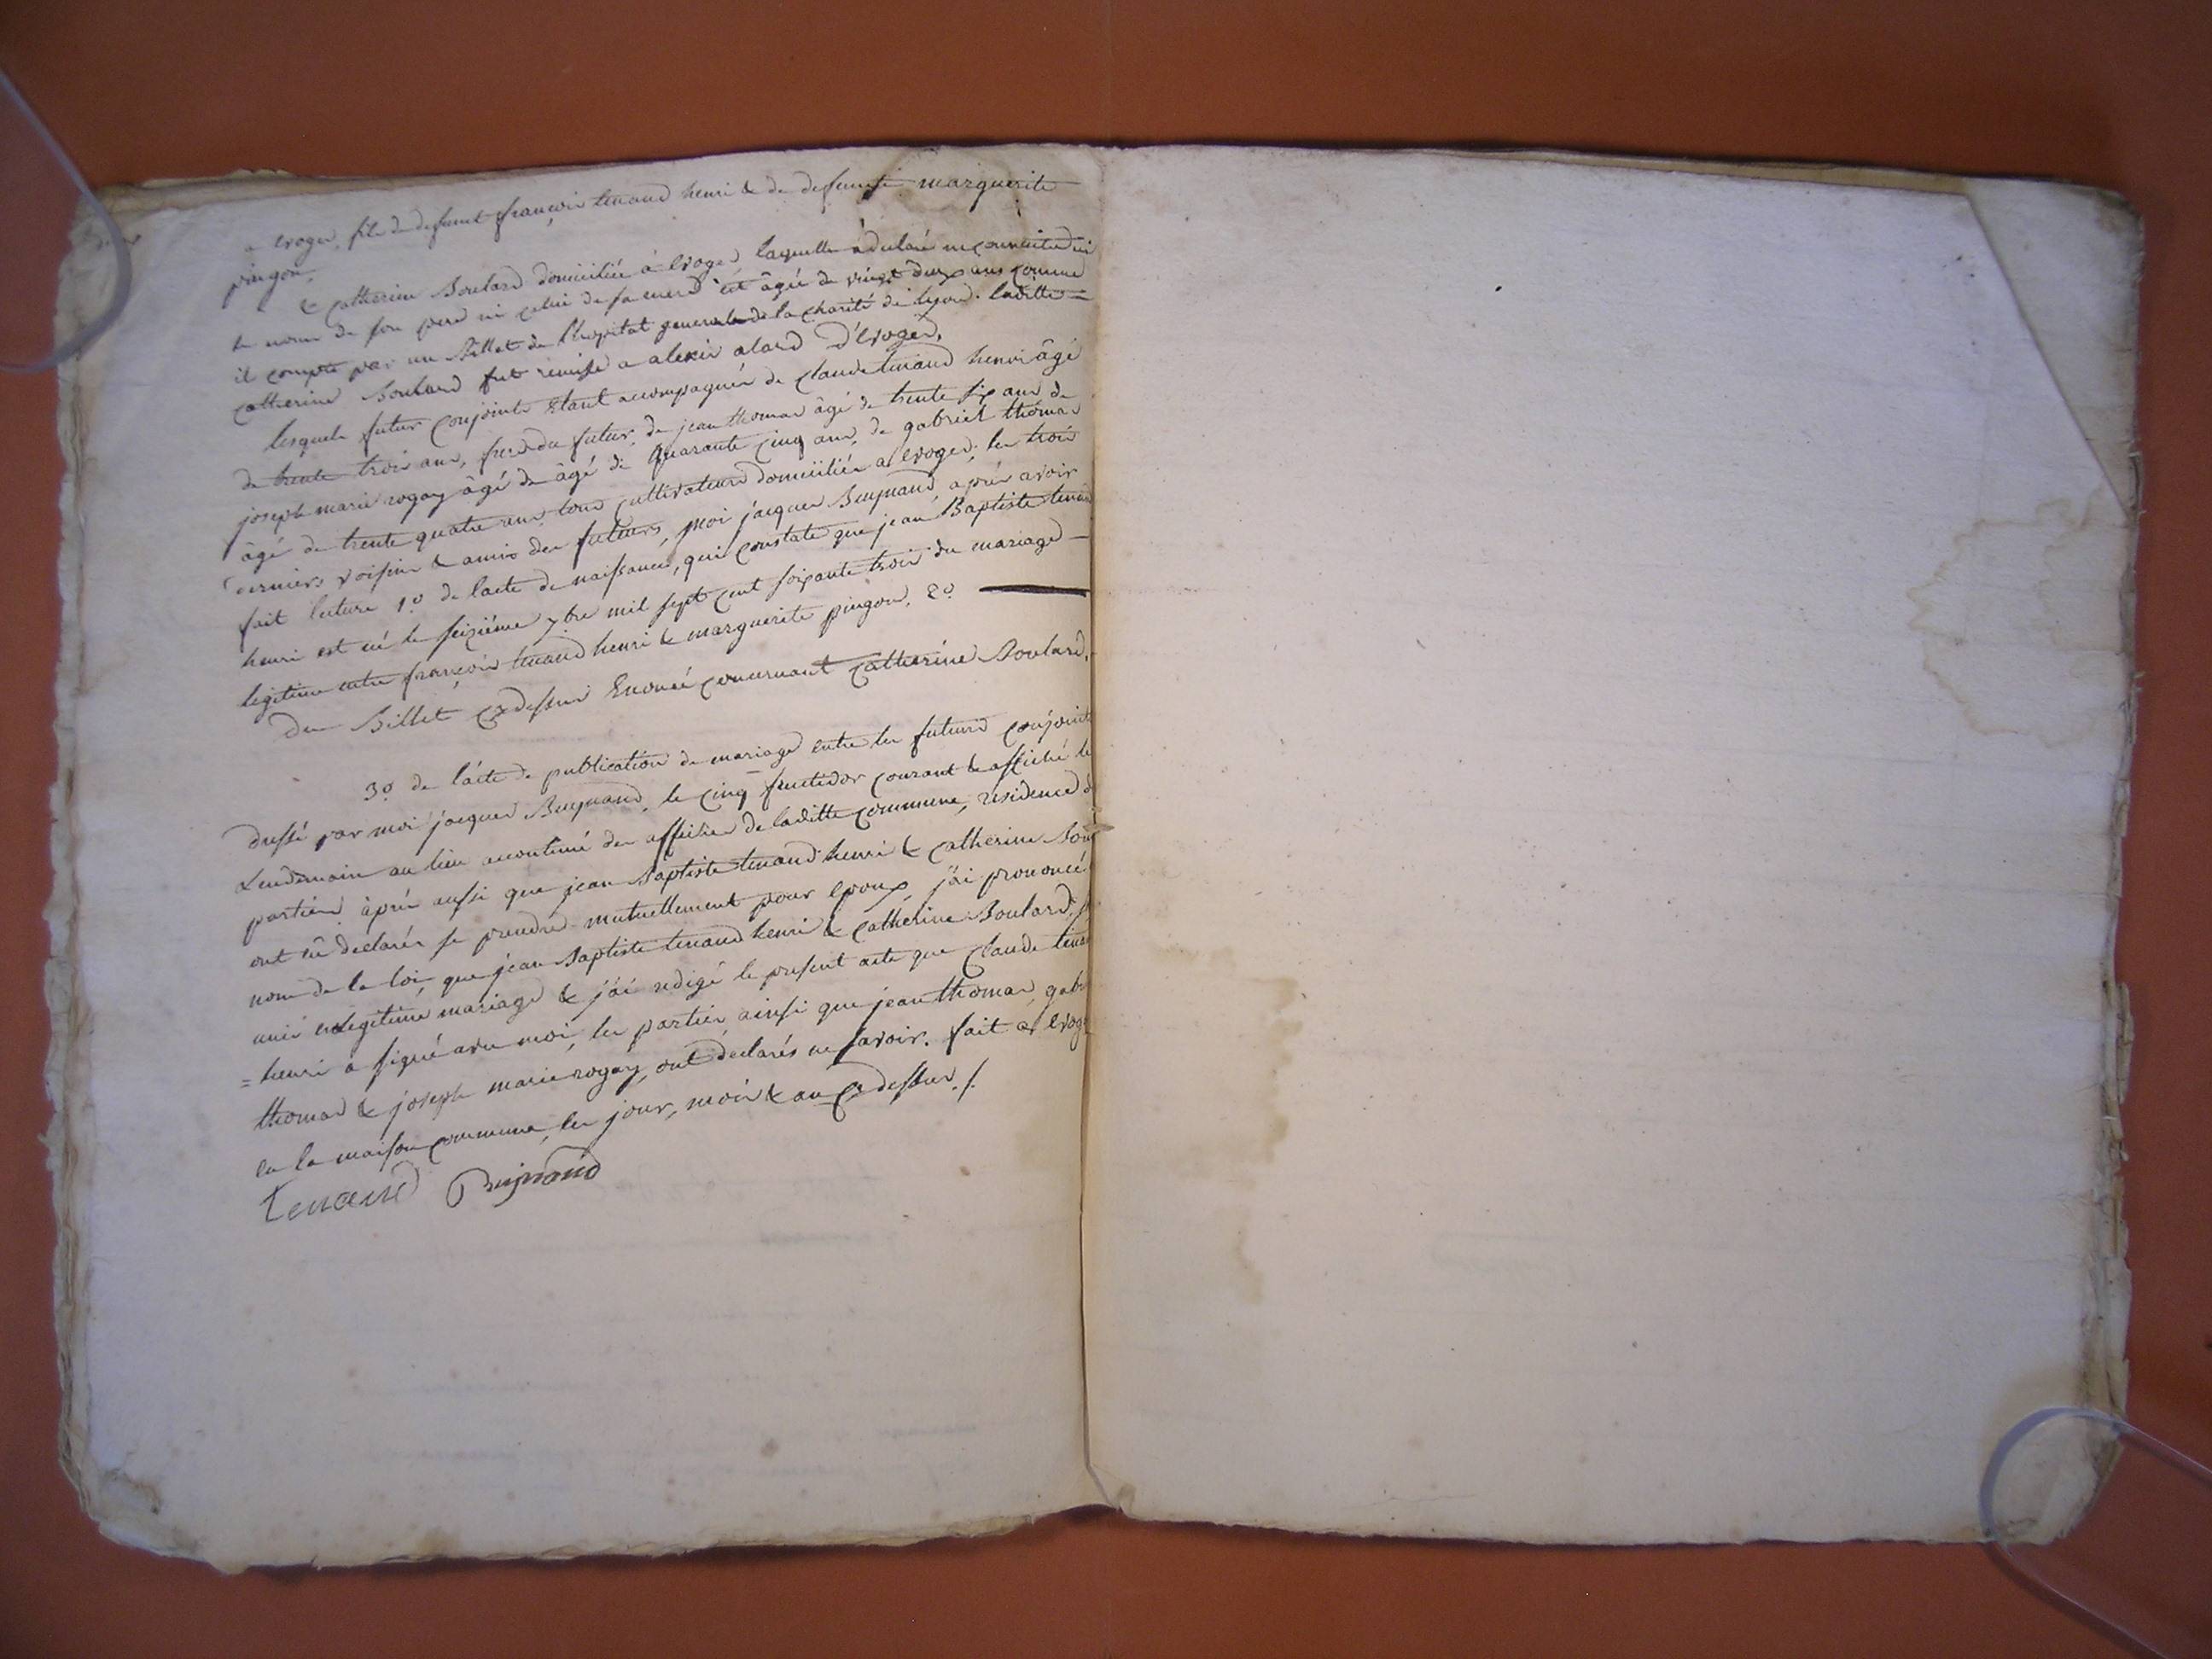 a Evoges, fils de defunt françois tenand henri & de defuncte marguerite
pingon,
& Catherine Boulard domiciliée à Evoges laquelle à declaré ne connoitre ni
le nom de son pere ni celui de sa mere et âgée de vingt deux ans comme
il compte par un Billet de l'hopital generale de la Charité de lyon. laditte =
Catherine Boulard fut remise a alexis alard d'Evoges,
lesquels futur Conjoints Etant accompagnés de Claude tenand henri âgé
de trente trois ans, frere du futur, de jean thomas âgé de trente six ans de
joseph marie rogay âgé de âgé de Quarante Cinq ans, de gabriel thomas
âgé de trente quatre ans tous Cultivateurs domiciliés a Evoges, les trois
derniers voisins & amis des futurs, moi jacques Buynand après avoir
fait lecture 1º de l'acte de naissance, qui Constate que jean Baptiste tenand
henri est né le seizième 7bre mil sept Cent soixante trois du mariage -
legitime entre françois tenand henri & marguerite pingon, 2º
du Billet Cy dessus Enoncé Concernant Catherine Boulard,
3º de l'acte de publication de mariage entre les futurs Conjoints
dressé par moi jacques Buynand, le Cinq fructidor Courant & affiché le
Lendemain au lieu accoutumé des affiches de laditte Commune, residence d
parties après aussi que jean Baptiste tenand henri & Catherine Bou
ont eû declarés se prendre mutuellement pour epoux, j'ai prononcé
nom de la loi, que jean Baptiste tenand henri & Catherine Boulard
unis en legitime mariage & j'ai redigé le present acte que Claude tena
= henri a signé avec moi, les parties ainsi que jean thomas, gab
thomas & joseph marie rogay, ont declarés ne savoir. fait a Evoge
en la maison Commune, les jour, mois & an Cy dessus ./.
tenand Buynand